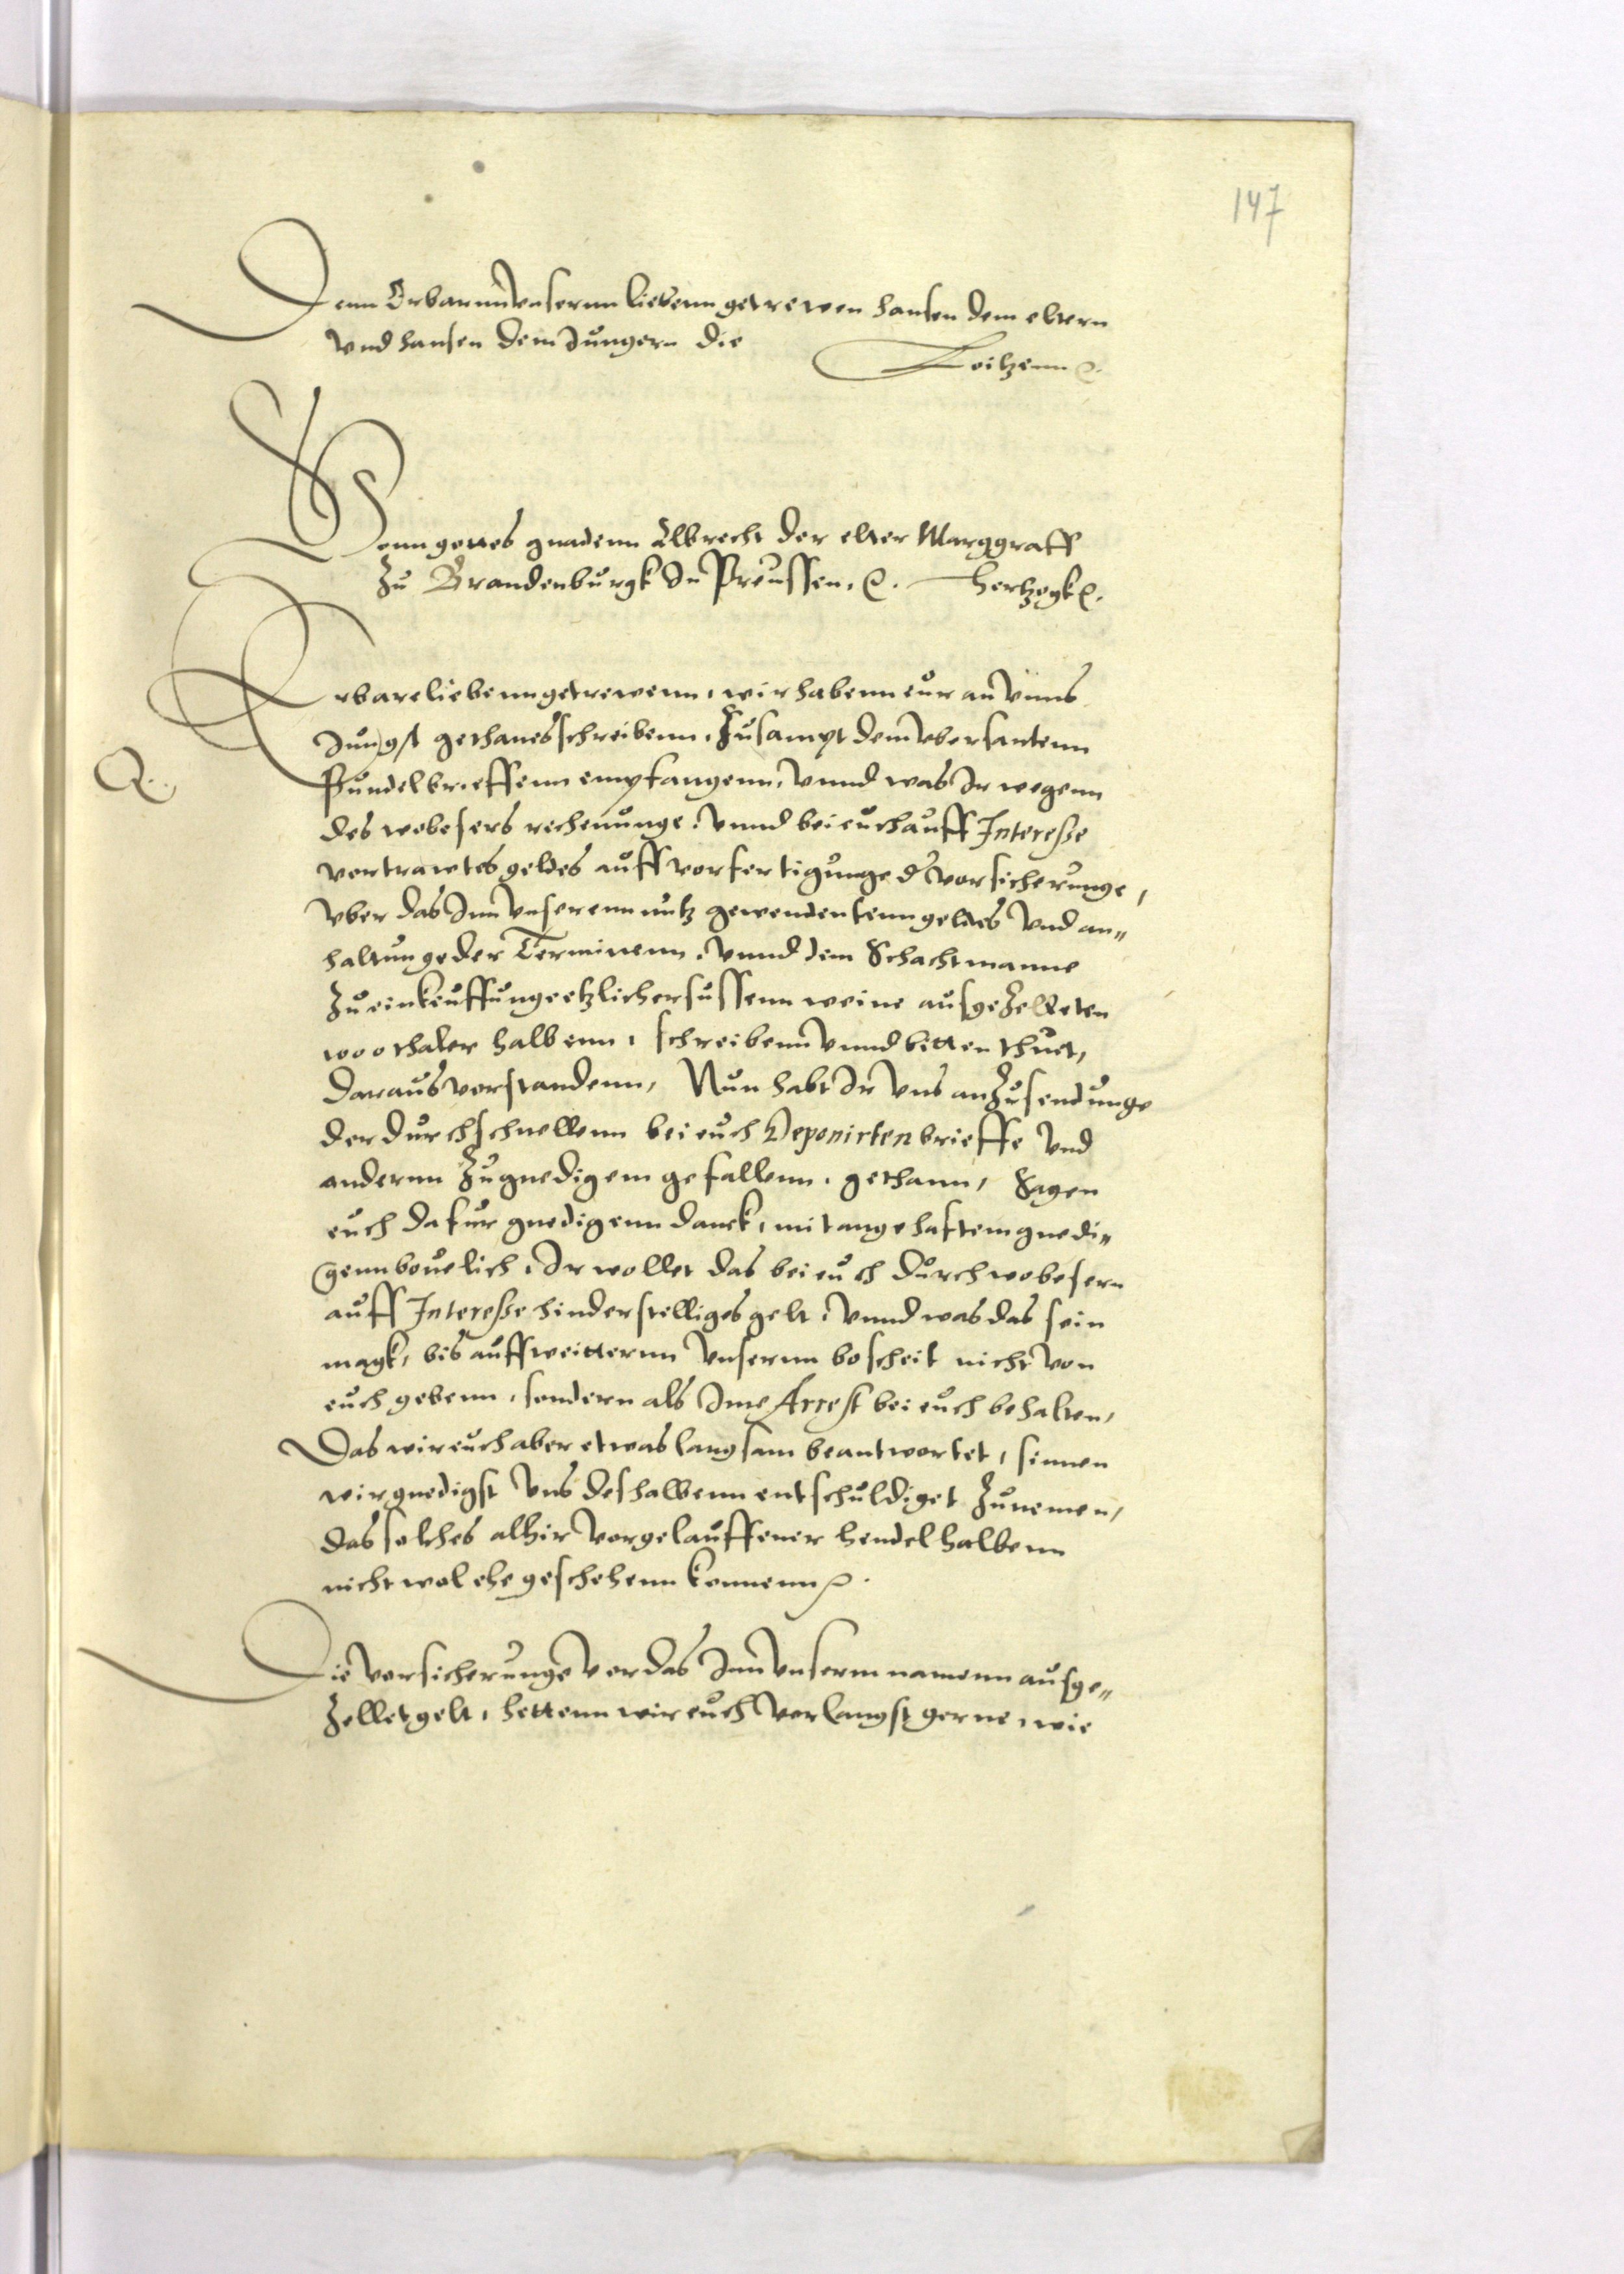 147
Denn Erbarnn Vnsernn liebenn getrewen Hansen dem eltern
Vnd Hansen dem Jungern die
Loitzenn &.
Vonn gottes gnadenn Albrecht der elter Marggraff
Zu Brandenburgk In Preussen. &. Hertzogk &.
Erbare liebenn getrewenn, wir habenn eur an Vnns
Jungst gethanes schreibenn, Zusampt dem vbersantenn
Q.
Pundel brieffenn empfangenn, Vnnd was Ir wegenn
des wobesers rechenunge, Vnnd bei euch auff Interesse
vertrawtes geldes auff vorfertigunge d Vorsicherunge,
Vber das Inn Vnserenn nutz gewendentenn geldes Vnd an„
haltunge der Terminenn, Vnnd dem Schachtmanne
Zu einkeuffunge etzlicher sussenn weine ausgezelleten
thaler halbenn, schreibenn Vnnd bitten thuet,
Daraus Vorstandenn, Nun habt Ir Vns an Zusendunge
der durchschnellenn bei euch Deponirten brieffe Vnd
andernn Zu gnedigem gefallenn, gethann, Sagen
euch dafur gnedigenn danck, mit angehaftem gnedi„
genn bouelich, Ir wollet das bei euch durch wobesern
auff Interesse hinderstelliges gelt, Vnnd was das sein
magk, bis auff weitternn Vnsernn boscheit nicht von
euch gebenn, sondern als Ime Arrest bei euch behalten,
Das wir euch aber etwas langsam beantwortet, sinnen
wir gnedigst Vns deshalbenn entschuldiget Zunemen,
das solches alhir Vorgelauffener hendel halbenn
nicht wol ehe geschehenn konnenn &.
Die Vorsicherunge Vor das Inn Vnserm namenn ausge„
Zellet gelt, hettenn wir euch Vorlangst gerne, wie